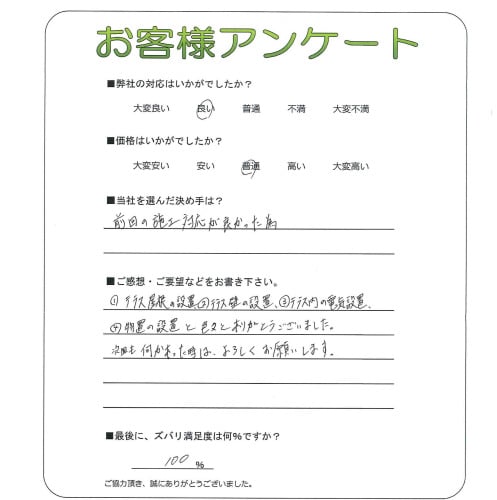 お客様アンケート
■弊社の対応はいかがでしたか？
大変良い 良い 普通 不満 大変不満
■価格はいかがでしたか？
大変安い 安い 普通 高い 大変高い
■当社を選んだ決め手は？
前回の施工対応が良かった為
■ご感想・ご要望などをお書き下さい。
①テラス屋根の設置②テラス壁の設置、③テラス内の電気設置、
④物置の設置と色々とありがとうございました。
次回も何かあった時は、よろしくお願いします。
■最後に、ズバリ満足度は何％ですか？
100 %
ご協力頂き、誠にありがとうございました。